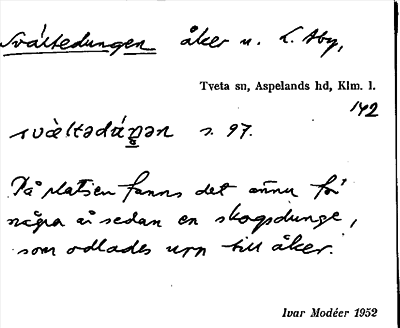 Svältedungen åker u. L. Aby,
Tveta sn, Aspelands hd, Klm. l.
142
s. 97.
På platsen fanns det ännu för
några år sedan en skogsdunge,
som odlades upp till åker.
Ivar Modéer 1952